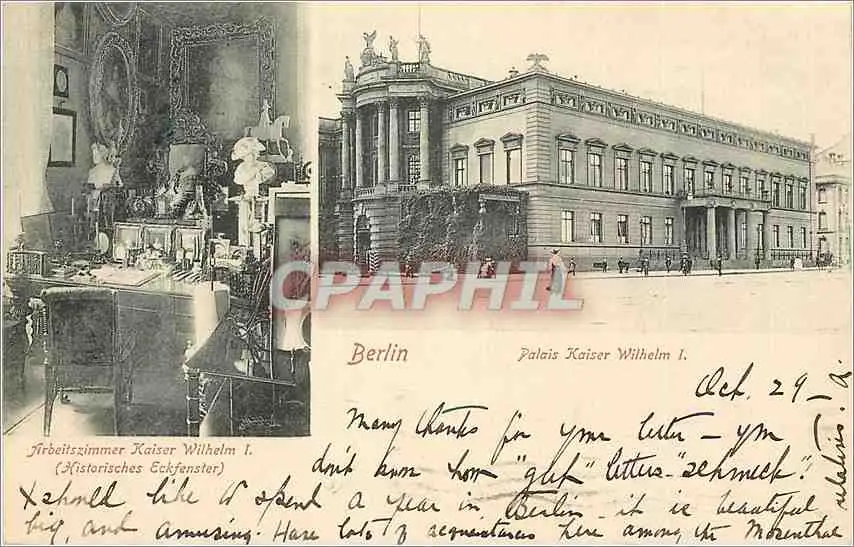 CPAPHIL
Berlin
Palais Kaiser Wilhelm I.
Arbeitszimmer Kaiser Wilhelm I.
(Historisches Eckfenster)
Oct. 29 –
Many thanks for your letter – you
don't know how "gut" letters "schmeck"!
I should like to spend a year in Berlin – it is beautiful
big, and amusing. Have lots of acquaintances here among the Mosenthal
relatives.